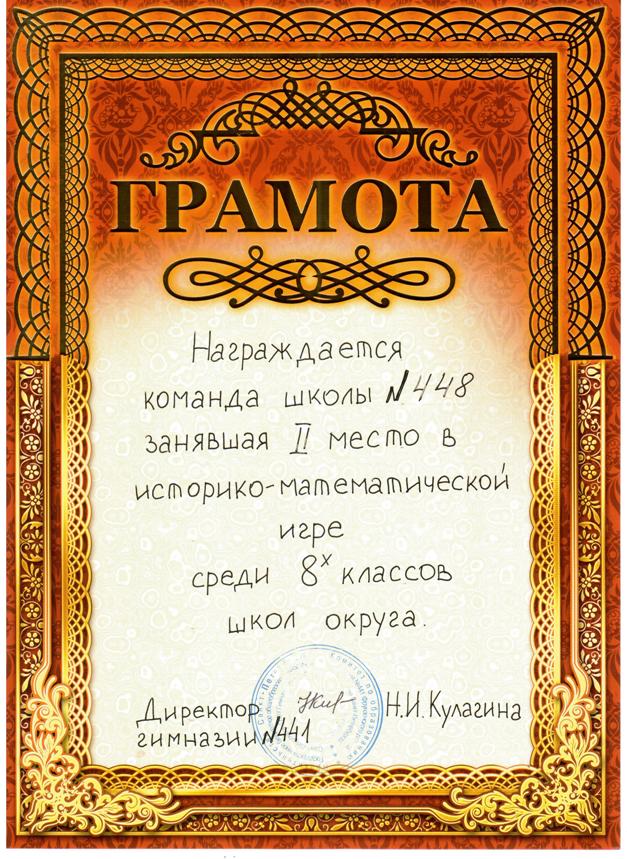 ГРАМОТА
Награждается
команда школы №448
занявшая II место в
историко-математической
игре
среди 8х классов
школ округа.
Директор Н.И. Кулагина
гимназии №441